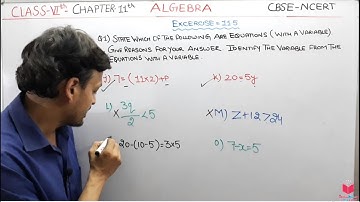 CLASS-VIth CHAPTER 11th ALGEBRA CBSE-NCERT
EXCERCISE=11.5
Q1) STATE WHICH OF THE FOLLOWING ARE EQUATIONS (WITH A VARIABLE).
GIVE REASONS FOR YOUR ANSWER. IDENTIFY THE VARIABLE FROM THE
EQUATIONS WITH A VARIABLE.
J) 7=(11×2)+P K) 20=5y
L) 3q/2<5 M) Z+12>24
20-(10-5)=3×5 O) 7-x=5